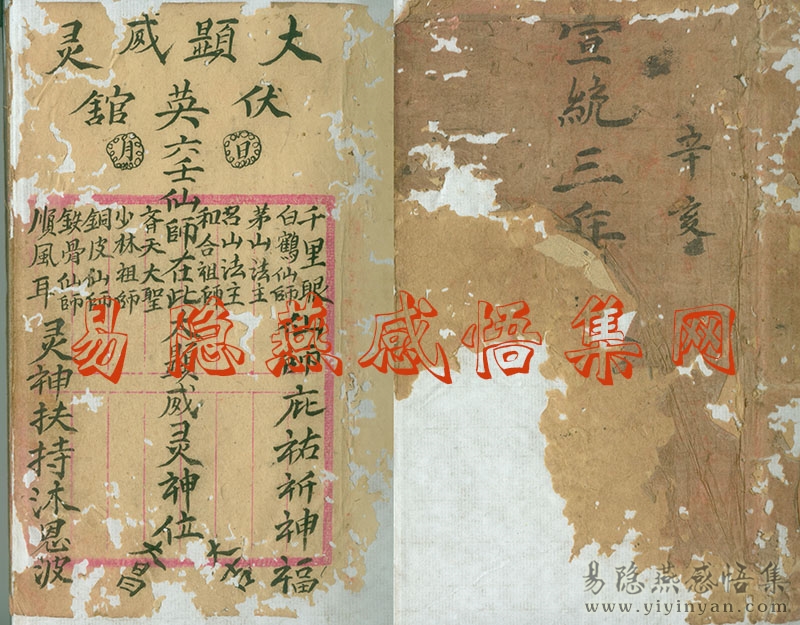 大顕威灵
伏英舘
日
月
千里眼
仙師庇祐祈神福
白鶴仙師
茅山法主
吕山法主
和合祖師
六壬仙師在此大顕威灵神位
斉天大聖
少林祖師
銅皮仙師
鉄骨仙師
順風耳
灵神扶持沐恩波
辛亥
宣統三年
易隐燕感悟集网
易隐燕感悟集
www.yiyinyan.com